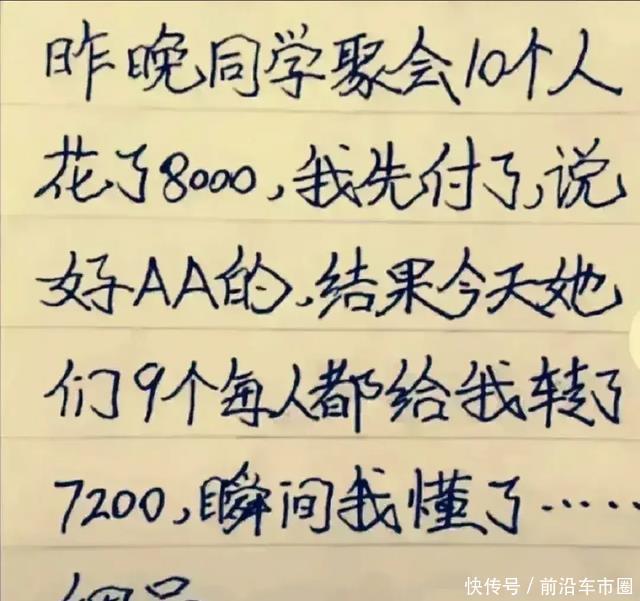 昨晚同学聚会10个人
花了8000,我先付了,说
好AA的,结果今天她
们9个每人都给我转了
7200,瞬间我懂了……
快传号/前沿车市圈